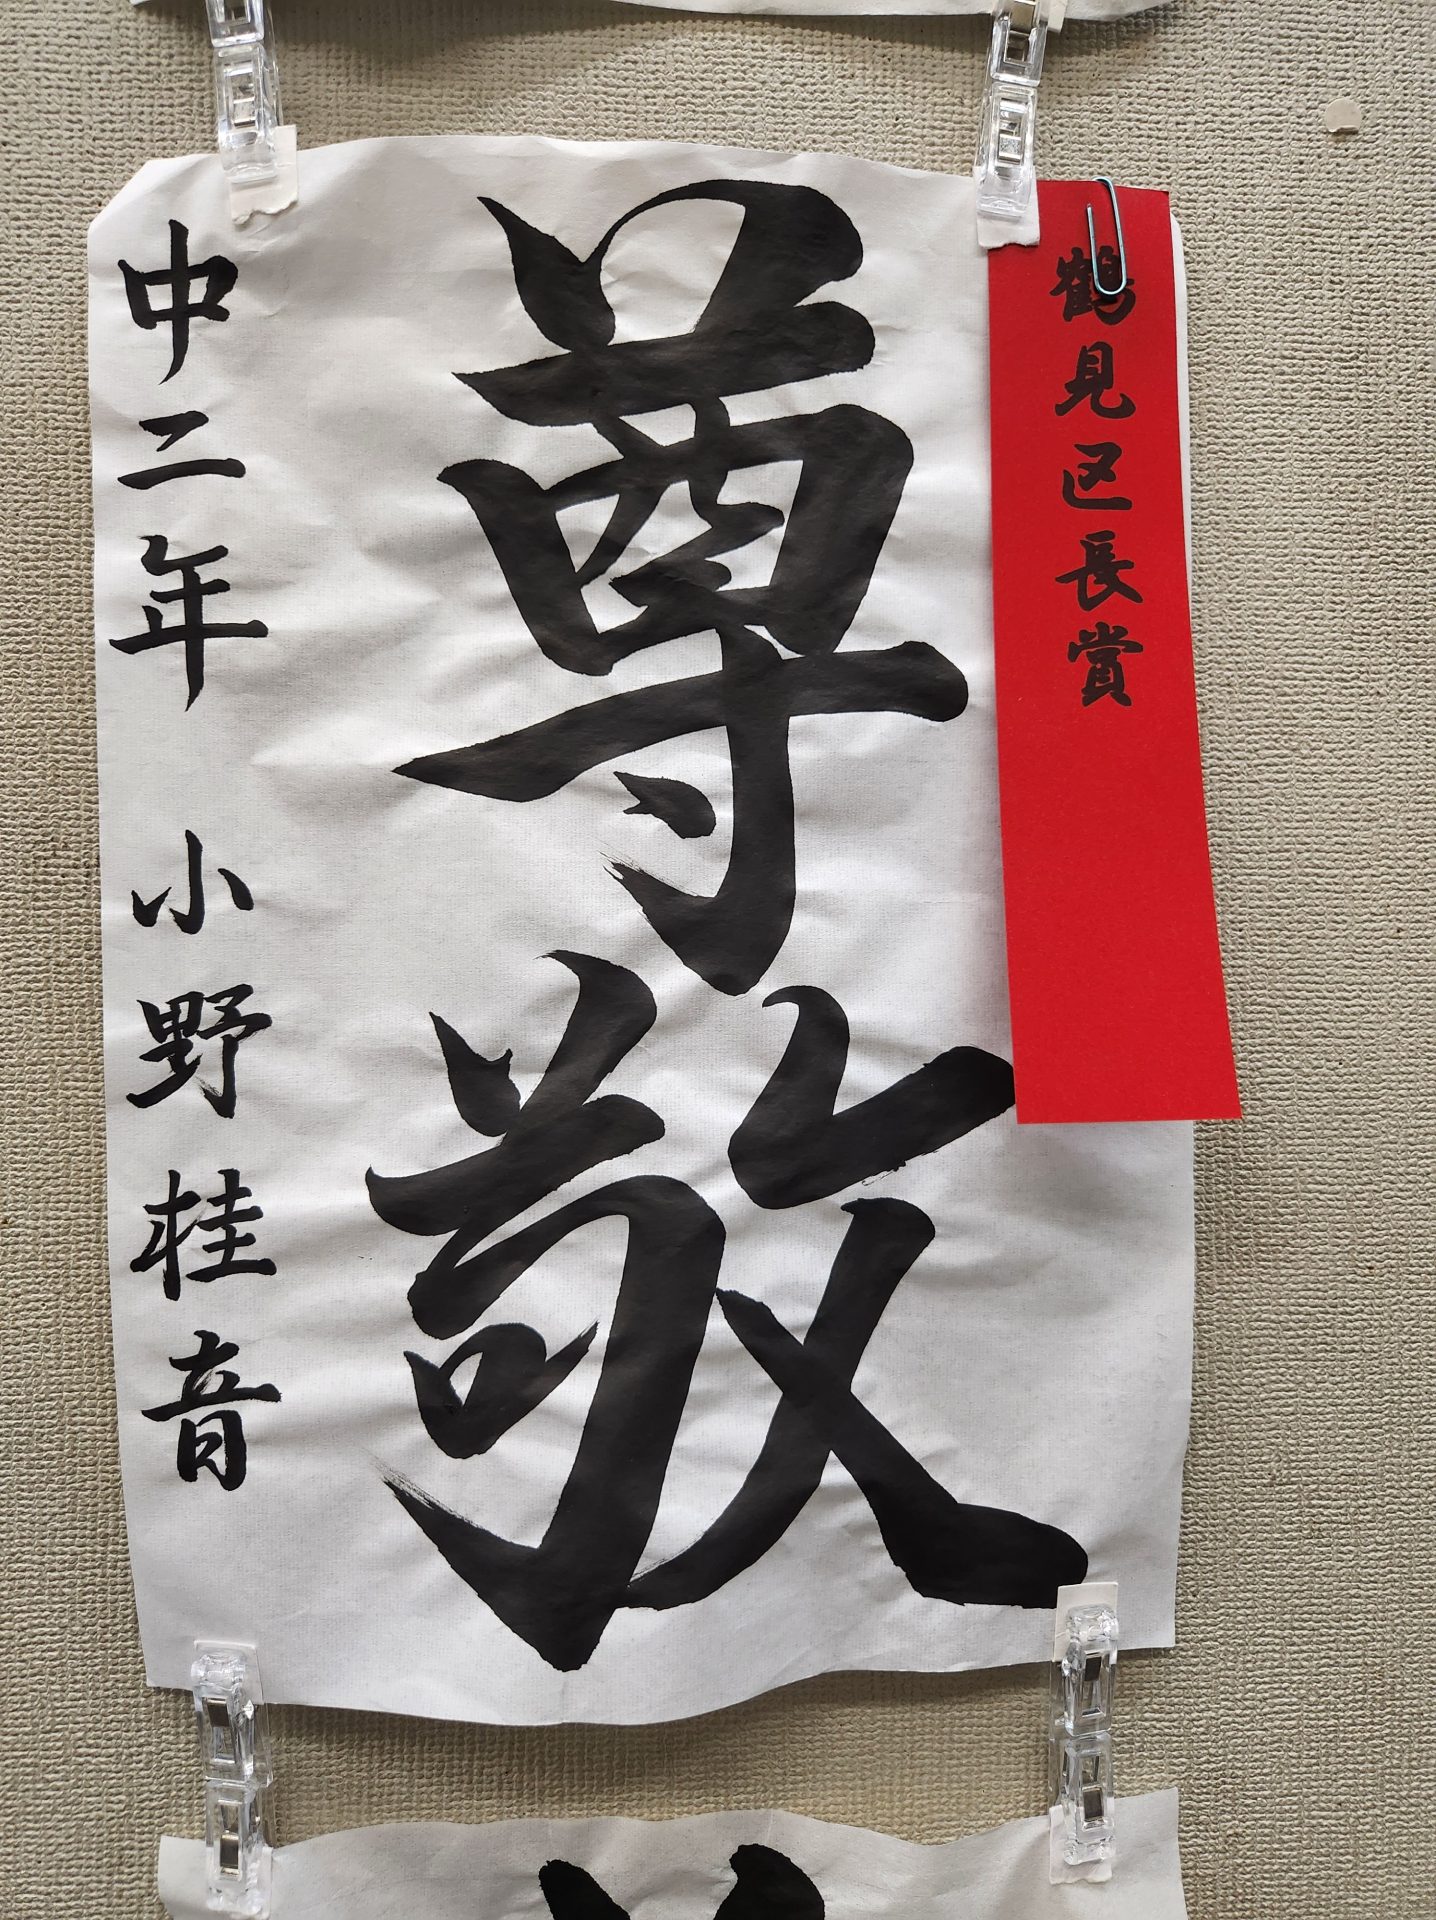 鶴見区長賞
尊敬
中二年 小野桂音